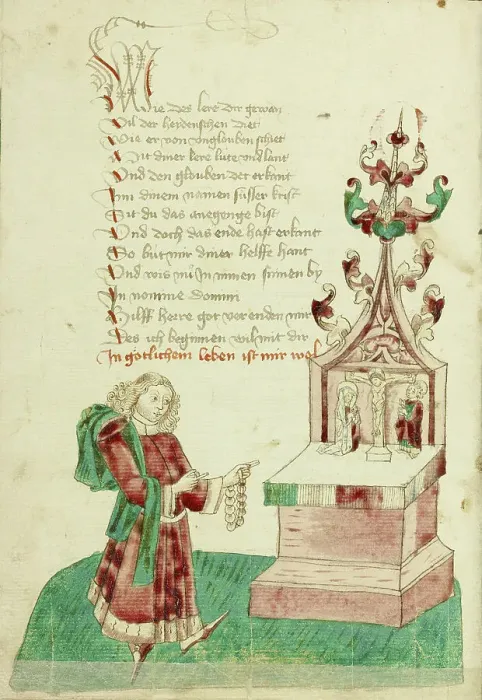 Wie des lere dir gewan
Vil der heidenschen diet
Wie er von vnglouben schiet
Mit diner lere lute vnd lant
Vnd den glouben det erkant
Inn dinem namen süsser krist
Sit du das anegenge bist
Vnd doch das ende hast erkant
So büt mir diner helffe hant
Vnd wis mir In minen sinnen by
In nomine domini
Hilff herre got verenden mir
Des ich beginnen wil mit dir
In gotlichem leben ist mir wol